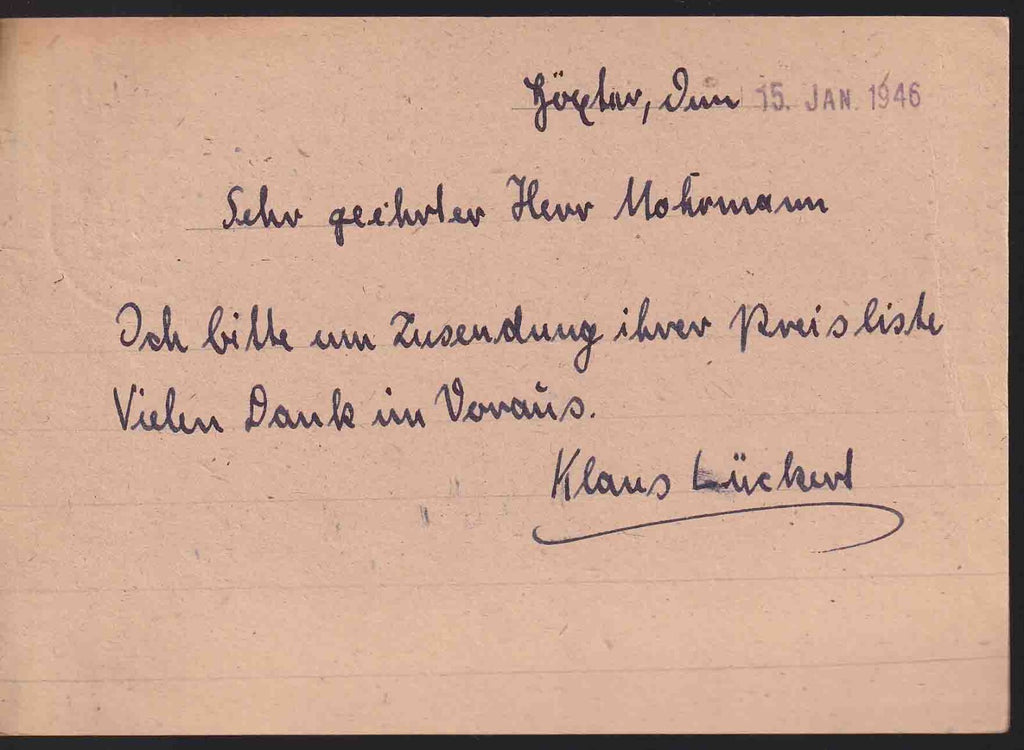 Höxter, den 15. JAN. 1946
Sehr geehrter Herr Mohrmann
Ich bitte um Zusendung ihrer Preisliste
Vielen Dank im Voraus.
Klaus Lückert